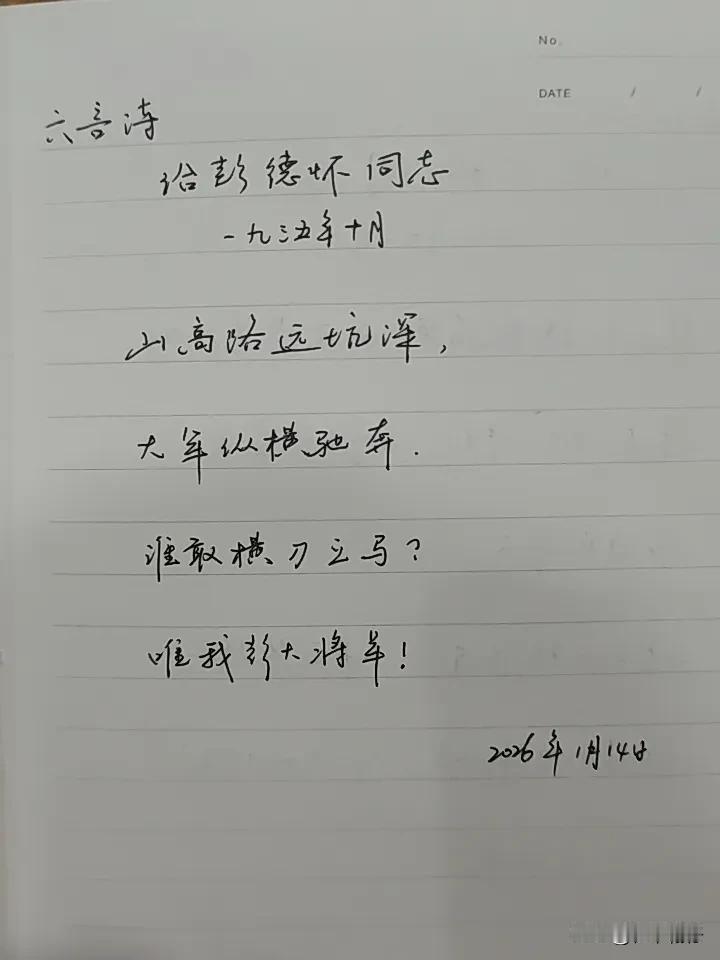 No.
DATE / /
六言诗
给彭德怀同志
一九三五年十月
山高路远坑深，
大军纵横驰奔.
谁敢横刀立马？
唯我彭大将军！
2026年1月14日